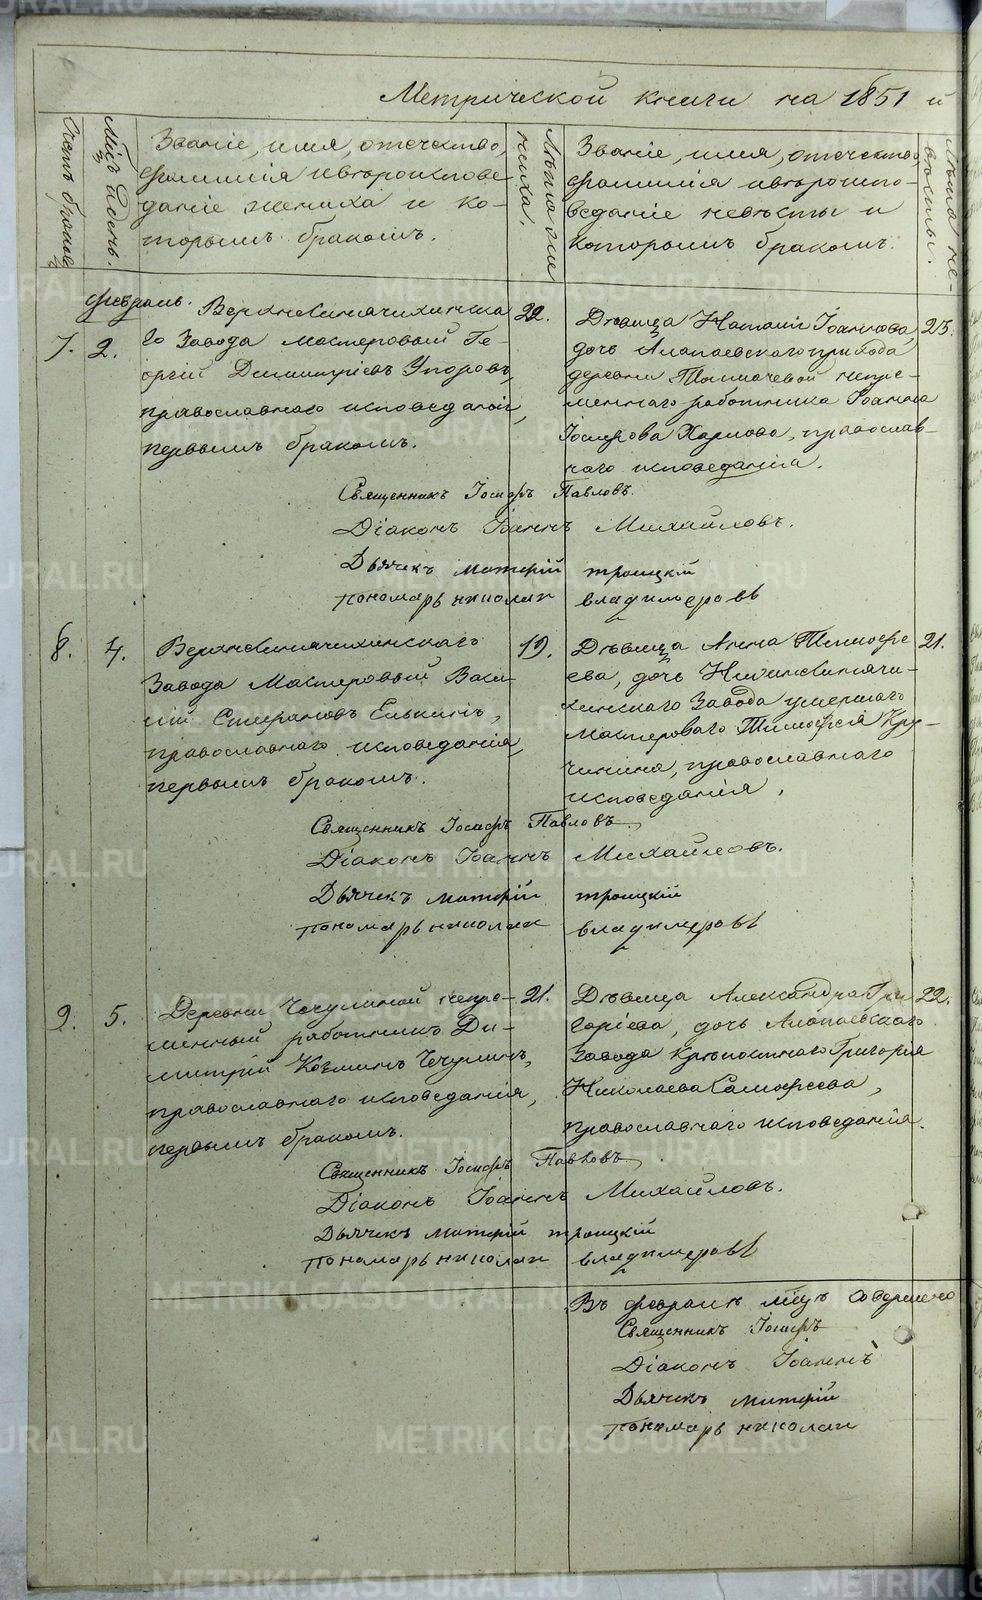 Метрической книги на 1851 й
Счетъ браков
Мѣсц. и день.
Званіе, имя, отечество,
фамилія и вѣроиспове
даніе жениха и ко-
торымъ бракомъ.
Лѣта же
ниха.
Званіе, имя, отечество,
фамилія и вѣроиспо-
веданіе невѣсты и
которымъ бракомъ.
Лѣта не-
вѣсты.
февраль.
7. 2.
Верхнесинячихинска
го Завода мастеровый Ге-
оргій Димитріевъ Упоровъ,
православнаго исповеданія,
первымъ бракомъ.
22.
Дѣвица Наталія Іоаннова,
дочь Алапаевскаго прихода
деревни Толмачевой непре-
меннаго работника Іоанна
Іосифова Харлова, православ-
наго исповеданія.
25.
Священникъ Іосифъ Павловъ.
Діаконъ Іоаннъ Михайловъ.
Дьячекъ матфій троицкій
пономарь николаи владимеровъ
8. 4.
Верхнесинячихинскаго
Завода Мастеровый Васи-
лій Стефановъ Елькинъ,
православнаго исповеданія,
первымъ бракомъ.
19.
Дѣвица Анна Тимофе
ева, дочь Нижнесинячи-
хинскаго Завода умершаго
мастероваго Тимофея Кру-
чинина, православнаго
исповеданія,
21.
Священникъ Іосифъ Павловъ.
Діаконъ Іоаннъ Михайловъ.
Дьячекъ матфій троицкій
пономарь николаи владимеровъ
9. 5.
Деревни Чечулиной непре-
менный работникъ Ди-
митрій Козминъ Чечулинъ,
православнаго исповеданія,
первымъ бракомъ.
21.
Дѣвица Александра Гри
горіева, дочь Алапаевскаго
Завода Крѣпостнаго Григорія
Николаева Самофеева,
православнаго исповеданія.
22.
Священникъ Іосифъ Павловъ.
Діаконъ Іоаннъ Михайловъ.
Дьячекъ матфій троицкій
пономарь николаи владимеровъ
Въ февралѣ мѣсцѣ совершено
Священникъ Іосифъ
Діаконъ Іоаннъ
Дьячекъ матфій
пономарь николаи
METRIKI.GASO-URAL.RU